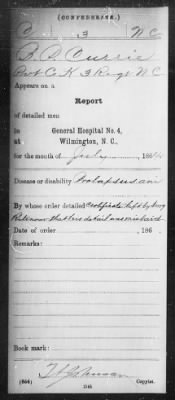 (CONFEDERATE.)
C 3 N C
Currie
Pvt Co. K 3 Regt N C
Appears on a
Report
of detailed men
in General Hospital No. 4,
at Wilmington, N. C.,
for the month of July, 1864
Disease or disability Prolapsus ani
By whose order detailed Certificate left by Surg
Date of order, 186
Remarks:
Book mark:
Johnson
(654) Copyist.